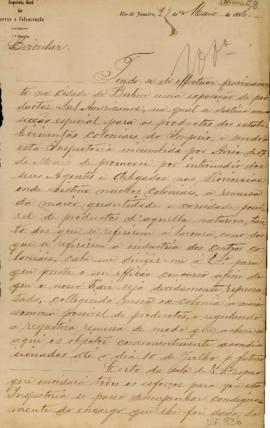 Inspectoria Geral
das
Terras e Colonisação
Rio de Janeiro, 27 de Maio de 1886.
Circular.
Tendo de se effectuar proximamen
te na cidade de Berlim uma exposição de pro
ductos Sul Americanos, na qual
secção especial para os productos dos estabe
lecimentos coloniaes do Imperio, e sendo
esta Inspectoria incumbida por Aviso de
de Maio de promover por intermedio dos
seus Agentes e Delegados nas Provincias
onde existem nucleos coloniaes, a remessa
da maior quantidade e variedade possi
vel de productos d'aquella natureza, tan
to dos que se referirem á lavoura, como dos
que se referirem a industria dos centros co
loniaes, cabe me dirigir-me á V.Sª para
que preste o seu efficaz concurso afim de
que o nosso seja devidamente represen
tado, colligindo nessa ex-colonia a maior
somma possivel de productos, e regulando
a respectiva remessa de modo que
aqui os objectos convenientemente acondi
cionados até o dia 10 de Julho p. futuro
Certo do zelo de V.Sª espero
que envidará todos os esforços para que esta
Inspectoria se possa desempenhar condigna
mente do encargo que lhe foi dado, de